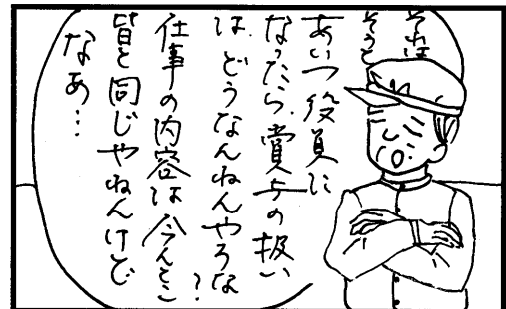 それは
そうと
あいつ役員に
なったら、賞与の扱い
は、どうなんねんやろな?
仕事の内容は今んとこ
皆と同じやねんけど
なあ…